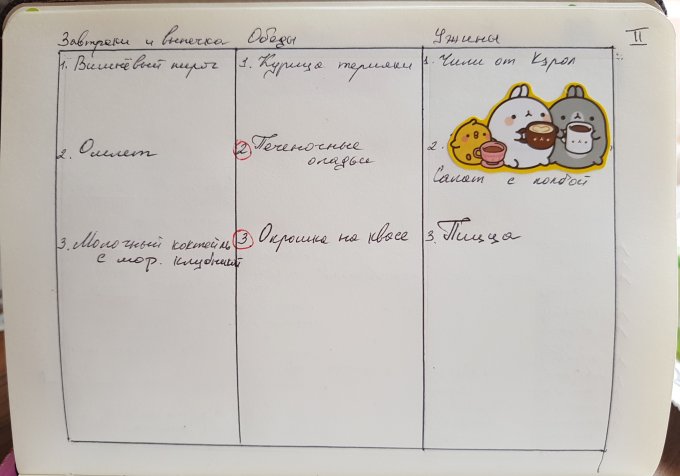 Завтраки и выпечка
Обеды
Ужины
II
1. Вишнёвый пирог
2. Омлет
3. Молочный коктейль
с мор. клубникой
1. Курица терияки
2 Печеночные
оладьи
3 Окрошка на квасе
1. Чили от Кэрол
2.
Салат с полбой
3. Пицца